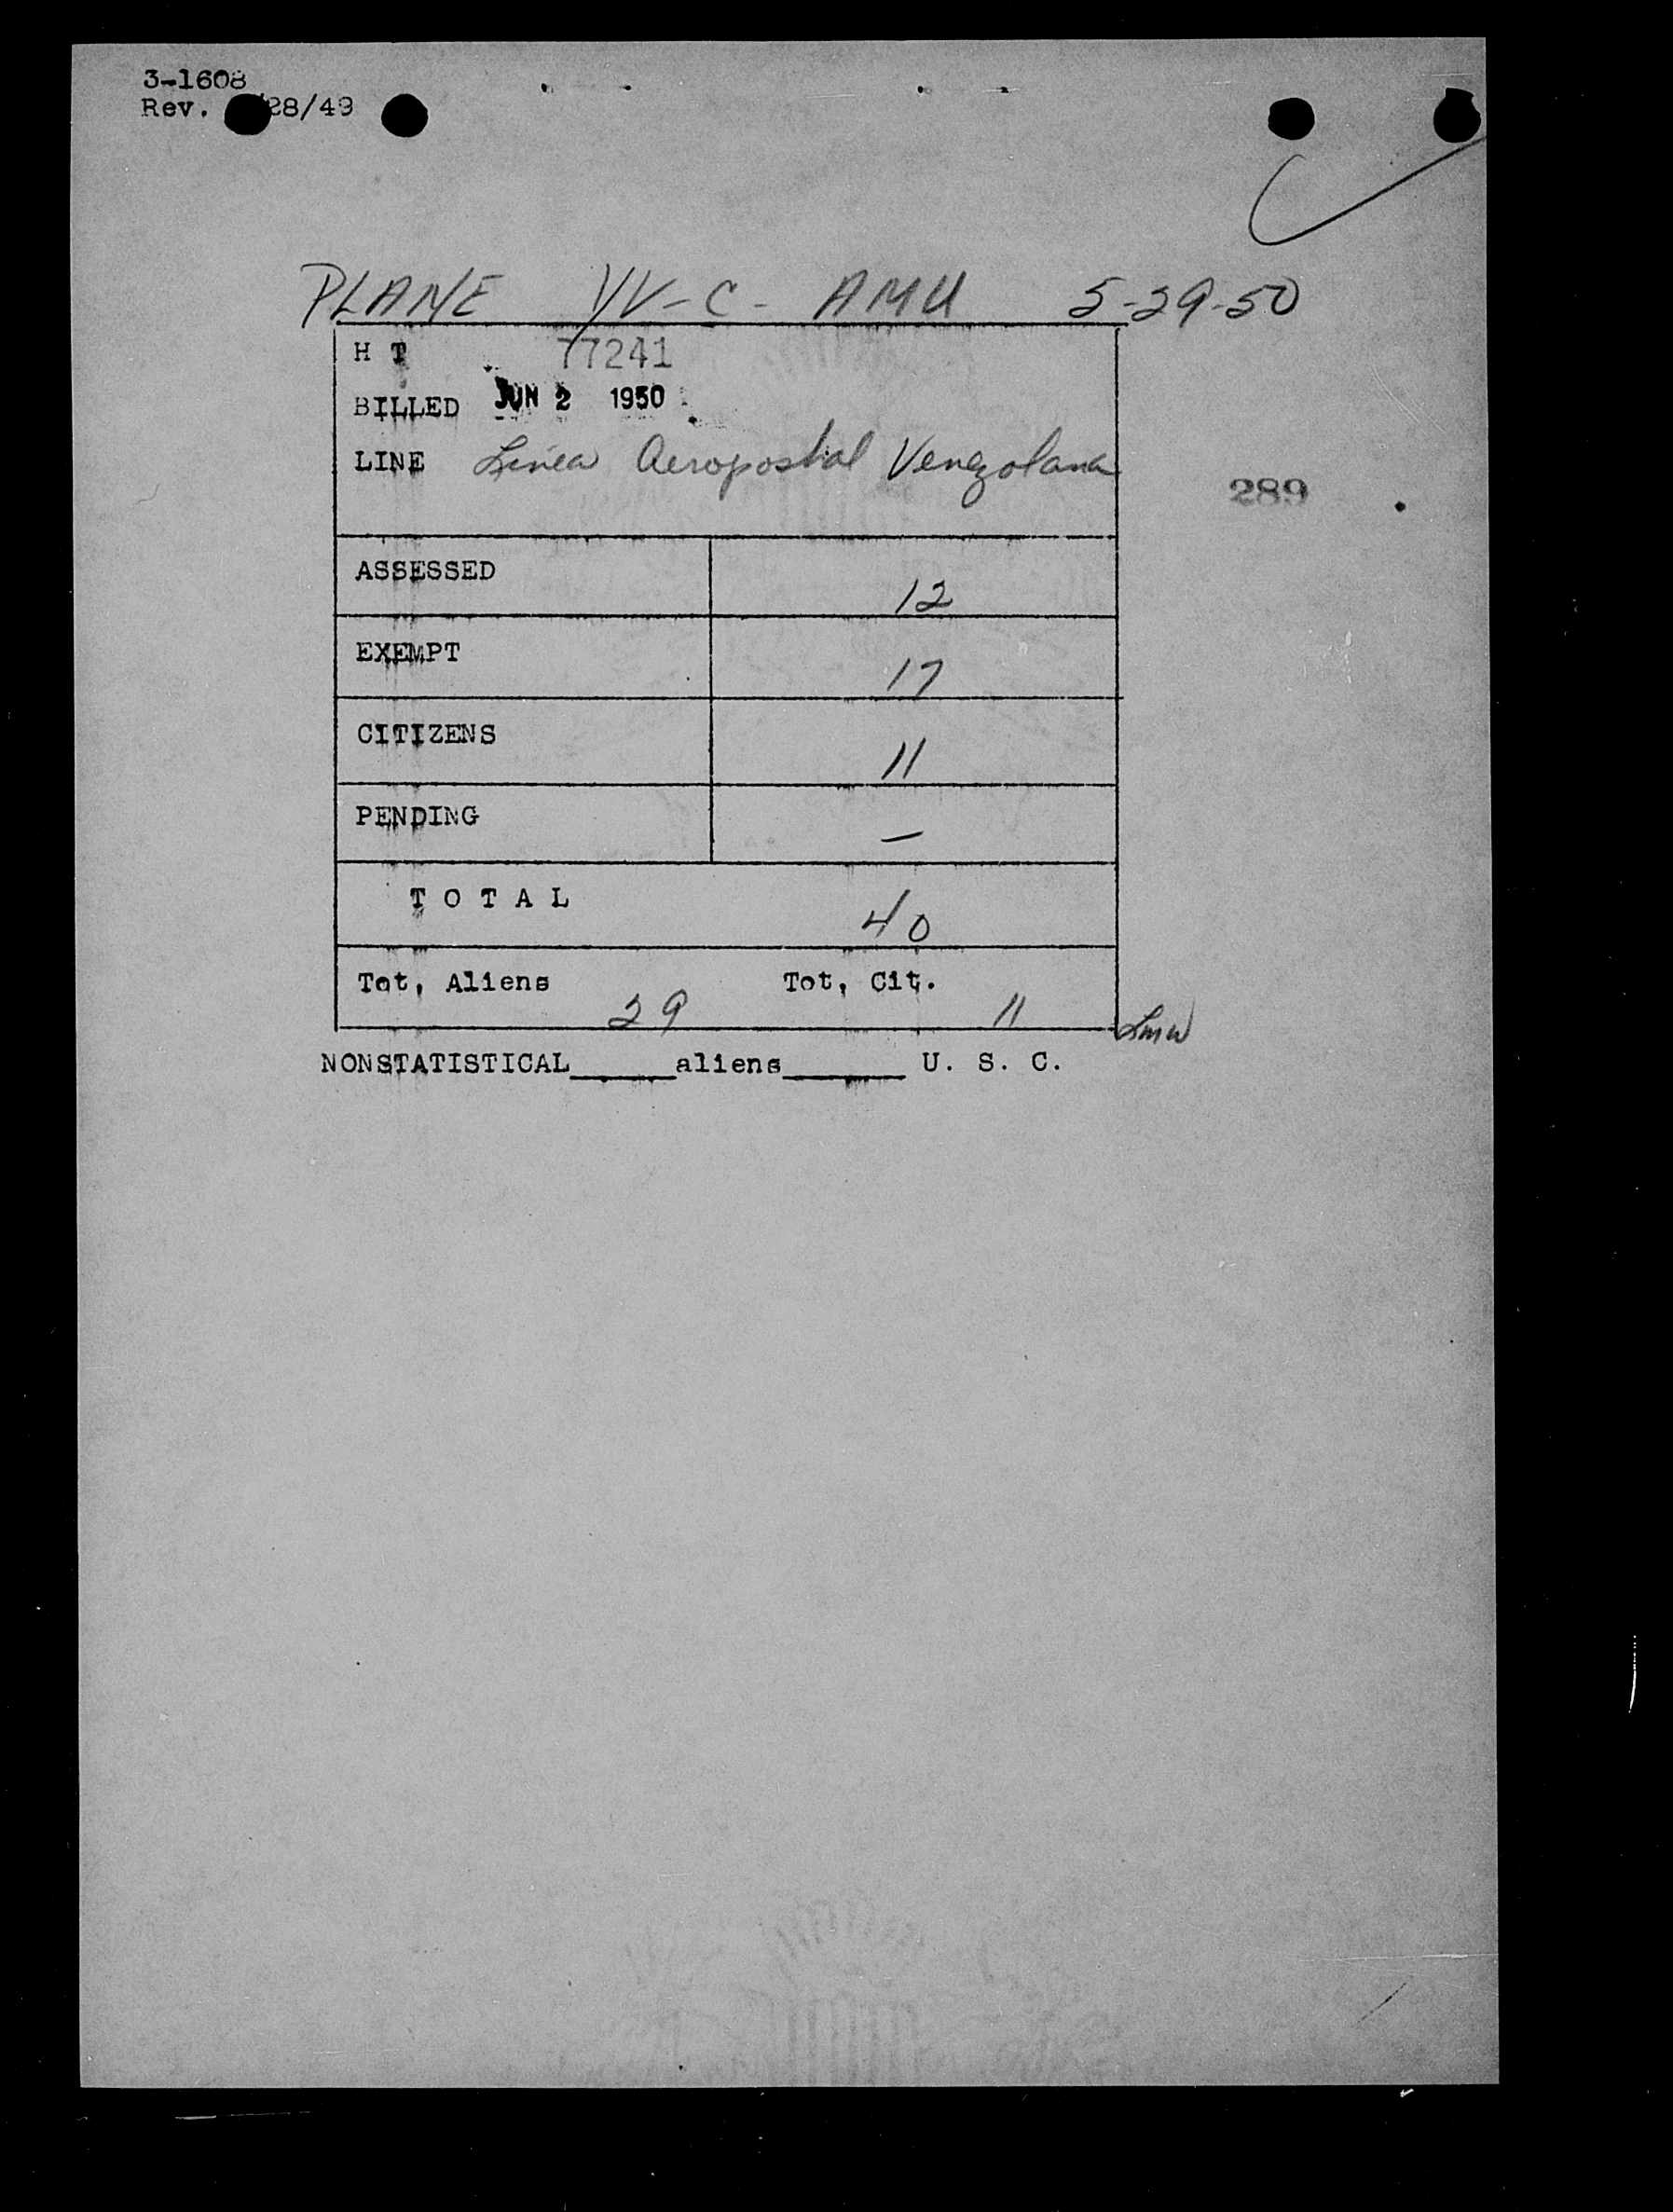 3-1608
Rev. /28/49
PLANE YV-C-AMU 5-29-50
H T 77241
BILLED JUN 2 1950
LINE Linea Aeropostal Venezolana
289
ASSESSED 12
EXEMPT 17
CITIZENS 11
PENDING —
TOTAL 40
Tot, Aliens 29 Tot, Cit. 11
NONSTATISTICAL______aliens_______ U. S. C.